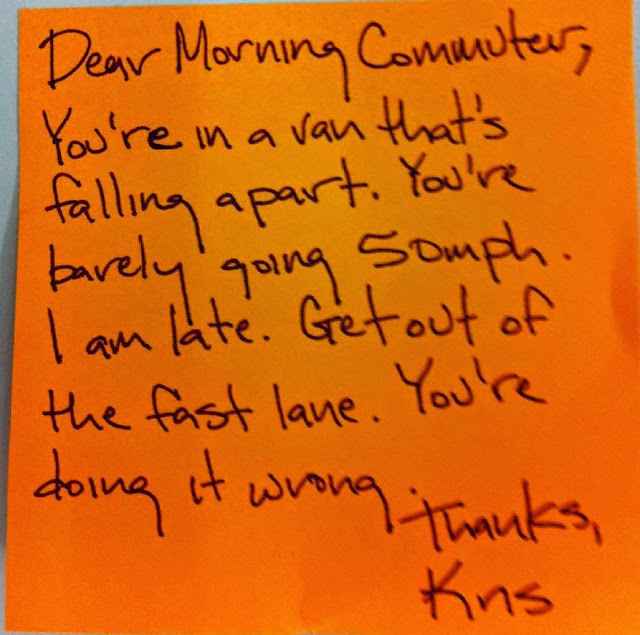 Dear Morning Commuter,
You're in a van that's
falling apart. You're
barely going 50mph.
I am late. Get out of
the fast lane. You're
doing it wrong.
Thanks,
Kns